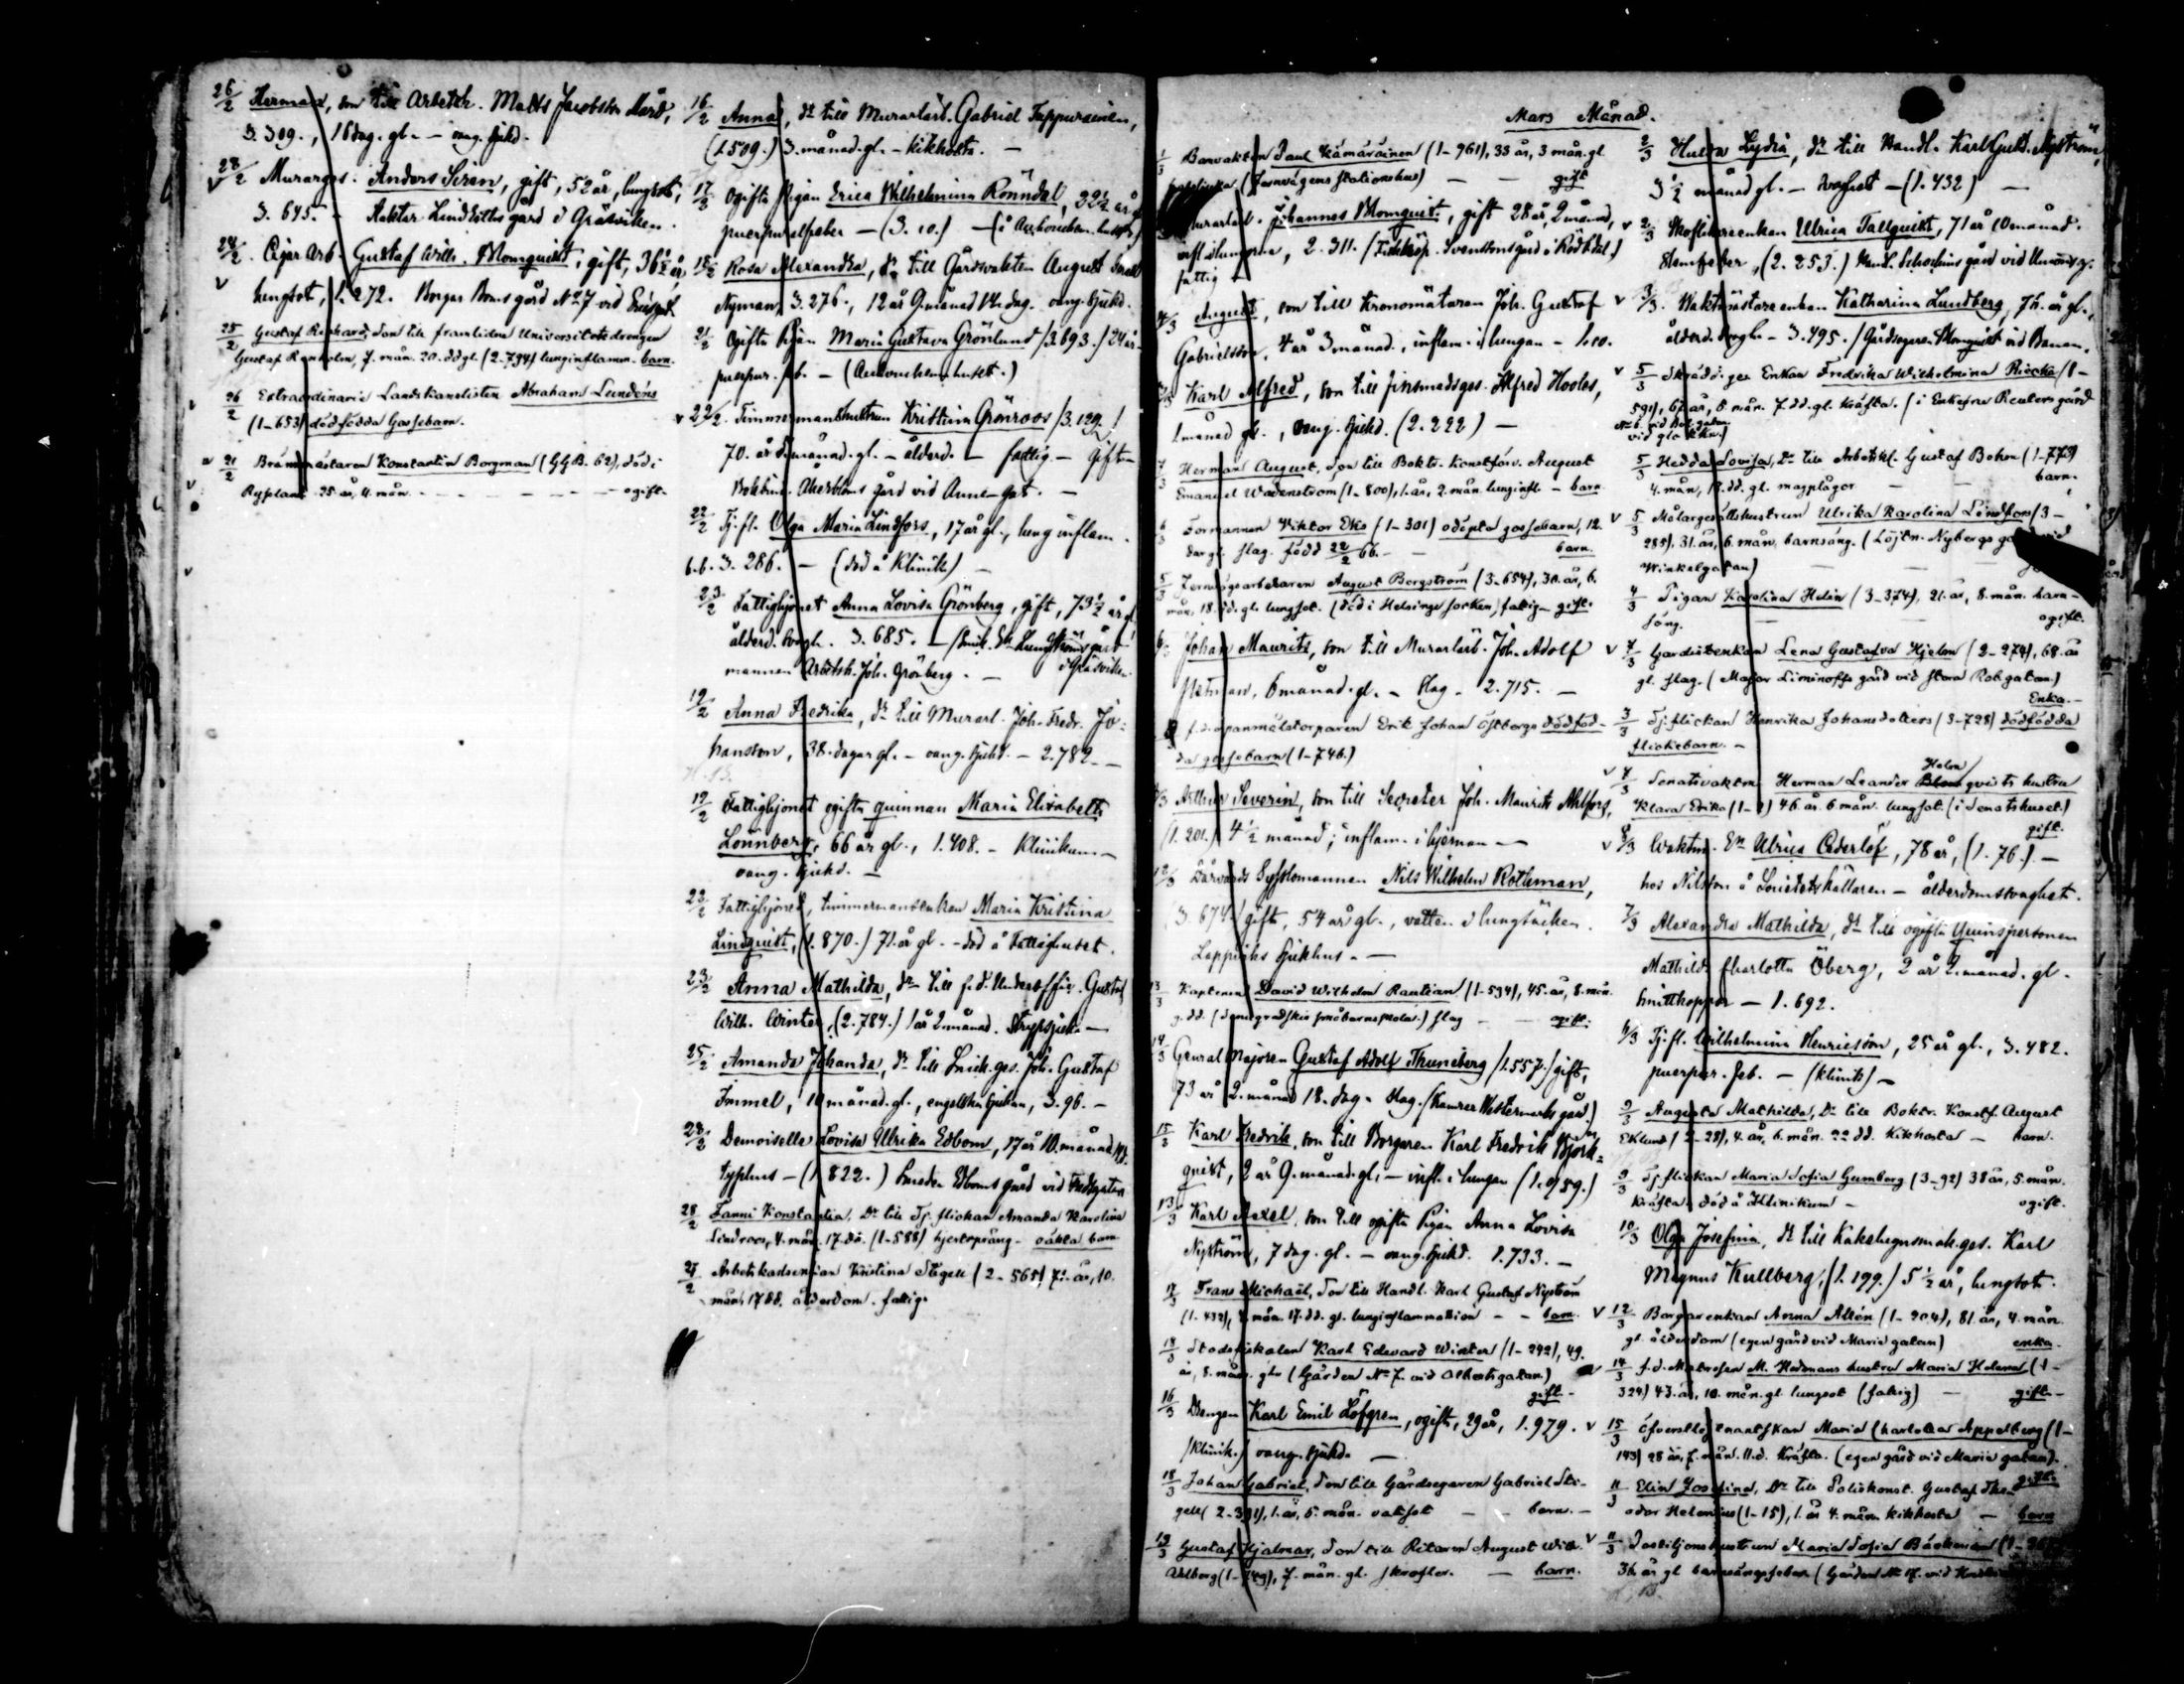 26/2 Herman, son till Arbetsk. Matts Jacobsson Mård,
3.309., 16 dag. gl. – oang. sjukd.
28/2 Murarges. Anders Siren, gift, 52 år, lungsot,
3. 645. – Aktör Lindroths gård i Gräsviken.
24/2. Cigar Arb. Gustaf Wilh. Blomquist, gift, 36½ år,
lungsot, 1.272. Borgar Boms gård № 7 vid
25/2 Gustaf Richard, son till framlidne Universitetsdrengen
Gustaf Ranholm, 7. mån. 20. dd gl. (2_794) lunginflamm. barn.
26/2 Extraordinarie Landtkanslisten Abraham Lundéns
(1_653) dödfödda Gossebarn.
21/2 Brännmästaren Konstantin Borgman (GGB. 62), död i
Ryssland 25 år, 4. mån. ogift.
16/2 Anna, dr till Murarlärl. Gabriel Tappurainen,
(1.509.) 3. månad. gl. – kikhosta. –
17/2 Ogifta Pigan Erica Wilhelmina Rönndal, 32½ år gl
puerpuralfeber – (3. 10.) –
18/2 Rosa Alexandra, dr till Gårdsvakten August
Nyman, 3.276., 12 år 9. månad 14 dag. oang. sjukd.
21/2 Ogifta Pigan Maria Gustava Grönlund /3.693./ 24 år
puerpur. feb. – (Accoucheme. huset.)
22/2. Timmermanshustrun Kristina Grönroos /3.129./
70. år månad. gl. – ålderd. – fattig – Gift –
Bokbind. Åkerbloms gård vid Anne-gat. –
22/2 Tj. fl. Olga Maria Lindfors, 17 år gl., lung inflam.
3. 286. – (död å Klinik) –
23/2 Fattighjonet Anna Lovisa Grönberg, gift, 73½ år gl
ålderd. svagh. 3. 685. –
mannen Arbetsk. Joh. Grönberg. – i Gräsviken
19/2 Anna Fredrika, dr till Murarl. Joh. Fredr. Jo-
hansson, 38. dagar gl. – oang. sjukd. – 2.782. –
19/2 Fattighjonet ogifta quinnan Maria Elisabeth
Lönnberg, 66 år gl., 1.408. – Klinikum –
oang. sjukd. –
23/2 Fattighjonet, timmermansenkan Maria Kristina
Lindquist, (1.870.) 71. år gl. – död å Fattighuset.
23/2 Anna Mathilda, dr till f.d. Underoffic. Gustaf
Wilh. Winter, (2.784.) 1 år 2. månad. Strypsjuka –
25/2 Amanda Johanda, dr till Snick. ges. Joh. Gustaf
Immel, 10 månad. gl., engelska sjukan, 3. 96. –
23/2 Demoiselle Lovisa Ulrika Edbom, 17 år 10. månad
typhus – (1.822.) Smeden Edboms gård vid Fredsgatan
28/2 Fanni Konstantia, Dr till Tj. flickan Amanda Karolina
Lindroos, 4. mån. 17. dd. (1_588) hjertsprång – oäkta barn
27/2 Arbetskarlsenkan Kristina Stigell (2_565) 72. år, 10.
mån. 17 dd. ålderdom. fattig.
Mars Månad.
1/3 Banvakten Paul Kämäräinen (1_961), 33 år, 3 mån. gl
(Jernvägens stationshus) – – gift
Murarlärl. Johannes Blomquist, gift 28 år, 2 månad,
infl i lungorna, 2. 311. /Svenssons gård i Rödberg./
fattig
August, son till Kronomätaren Joh. Gustaf
Gabrielsson, 4 år 3 månad., inflam. i lungan – 1.10.
Karl Alfred, son till finsmedsges. Alfred Hoolos,
1 månad gl., oang. sjukd. (2.222) –
7/3 Herman August, son till Boktr. Konstförv. August
Emanuel Wadenström (1_800), 1. år, 2. mån. lunginfl. – barn.
6/3 Formannen Wiktor Eks (1_301) odöpta gossebarn, 12.
dar gl. slag. född 22/2 66. – barn.
5/3 Jernvägsarbetaren August Bergström (3_654), 30. år, 6.
mån, 18. dd. gl. lungsot. (död i Helsinge socken) fattig – gift.
6/3 Johan Mauritz, son till Murarlärl. Joh. Adolf
Hetman, 6 månad. gl. – Slag – 2.715. –
f.d. spannmålstorparen Erik Johan Östbergs dödföd-
da gossebarn (1_746.)
Arthur Severin, son till Secreter Joh. Maurits Ahlfors,
(1. 201.) 4½ månad; inflam. i hjernan –
12/3 Bårvårds Sysslomannen Nils Wilhelm Rothman,
(3 674.) gift, 54 år gl., vatten i lungsäcken.
Lappviks Sjukhus. –
13/3 Kaptenen David Wilhelm Rantian (1_534), 45. år, 8. mån.
9. dd. (småbarnsskola.) slag – ogift.
14/3 General Majoren Gustaf Adolf Thuneberg /1.557./ gift,
73 år 2. månad 18. dag. – Slag. (Kamrer Westermarks gård.)
15/3 Karl Fredrik, son till Borgaren Karl Fredrik Björk-
quist, 2 år 9. månad. gl. – infl. i lungan (1.0/59.)
13/3 Karl Axel, son till ogifta Pigan Anna Lovisa
Nyström, 7 dag. gl. – oang. sjukd. 1.733. –
17/3 Frans Michaël, son till Handl. Karl Gustaf Nyström
(1.432), mån. 17. dd. gl. lunginflammation – – barn.
18/3 Stadsfiskalen Karl Edevard Winter (1_242), 49.
år, 8. mån. gl. (Gården № 7. vid Albertsgatan.)
gift. –
16/3 Drengen Karl Emil Löfgren, ogift, 29 år, 1.979.
/klinik./ oang. sjukd. –
18/3 Johan Gabriel, son till Gårdsegaren Gabriel Sti-
gell (2_391), 1. år, 5. mån. vatsot – – barn. –
19/3 Gustaf Hjalmar, son till Ritaren August Wilh.
Ahlberg (1_749), 7. mån. gl. skrofler. – barn.
2/3 Hulda Lydia, dr till Handl. Karl Gust. Nyström,
3½ månad gl. – svaghet – (1.432) –
2/3 Skoflickareenkan Ulrica Tallquist, 71 år 10 månad.
Slemfeber, (2.253.) gård vid Unionsg.
3/3. Waktmästareenkan Katharina Lundberg, 74. år gl.,
ålderd. svagh. – 3.495. /Gårdsegaren Blomquist vid Banan.
5/3 Skräddi. ges Enkan Fredrika Wilhelmina Riecke (1_
591), 67. år, 8. mån. 7. dd. gl. Kräfta. (i Enkefru Reuters gård
№ 6. vid
5/3 Hedda Lovisa, Dr till Arbetskl. Gustaf Bohm (1_779)
4. mån, 18. dd. gl. magplågor – – barn.
5/3 Målargesällshustrun Ulrika Karolina Lindfors (3_
285). 31. år, 6. mån. barnsäng. (Löjtn. Nybergs gård vid
Winkelgatan) –
4/3 Pigan Karolina Helin (3_374), 21. år, 8. mån. barn-
säng. – ogift.
7/3 Gardistenkan Lena Gustafva Hjelm (2_274), 68. år
gl. slag. (Major Liminoffs gård vid Stora Rob. gatan.)
Enka. –
3/3 Tj. flickan Henrika Johansdotters (3_728) dödfödda
flickebarn. –
7/3 Senatsvakten Herman Leander Holmqvists hustru
Klara Erika (1_ ) 46. år. 6 mån. lungsot. (i Senatshuset.)
gift.
8/3 Waktm. En Ulrica Cederlöf, 78 år, (1. 76.) –
hos Nilsson å Societetskällaren – ålderdomssvaghet.
7/3 Alexandra Mathilda, dr till ogifta Quinspersonen
Mathilda Charlotta Öberg, 2 år 2. månad. gl.
smittkoppor – 1.692.
6/3 Tj. fl. Wilhelmina Henricsson, 25 år gl., 3.482.
puerper. feb. – /klinik/ –
9/3 Augusta Mathilda, Dr till Boktr. Konstf. August
Eklund (2_28), 4. år, 6. mån. 22 dd. Kikhosta – barn.
9/3 Tj. flickan Maria Sofia Gumberg (3_92) 38 år, 5. mån.
kräfta. död å Klinikum – ogift.
10/3 Olga Josefina, dr till Kakelugnsmak. ges. Karl
Magnus Kullberg, (1.199.) 5½ år, lungsot.
12/3 Borgarenkan Anna Allén (1_204), 81. år, 4. mån.
gl. ålderdom (egen gård vid Maria gatan) enka.
14/3 f.d. Matrosen M. Hedmans hustru Maria Helena (1_
324) 43. år, 10. mån. gl. lungsot (fattig) – gift. –
15/3 Öfverstelöjtnantskan Maria Charlotta Appelberg (1_
143) 28 år, 7. mån. 11. d. Kräfta. (egen gård vid Maria gatan).
gift.
11/3 Elin Josefina, Dr till Poliskonst. Gustaf The-
odor Helenius (1_15), 1. år 4. mån. kikhosta – barn
11/3 Postiljonshustrun Maria Sofia Bäckman
34 år gl barnsängsfeber (Gården № 17. vid